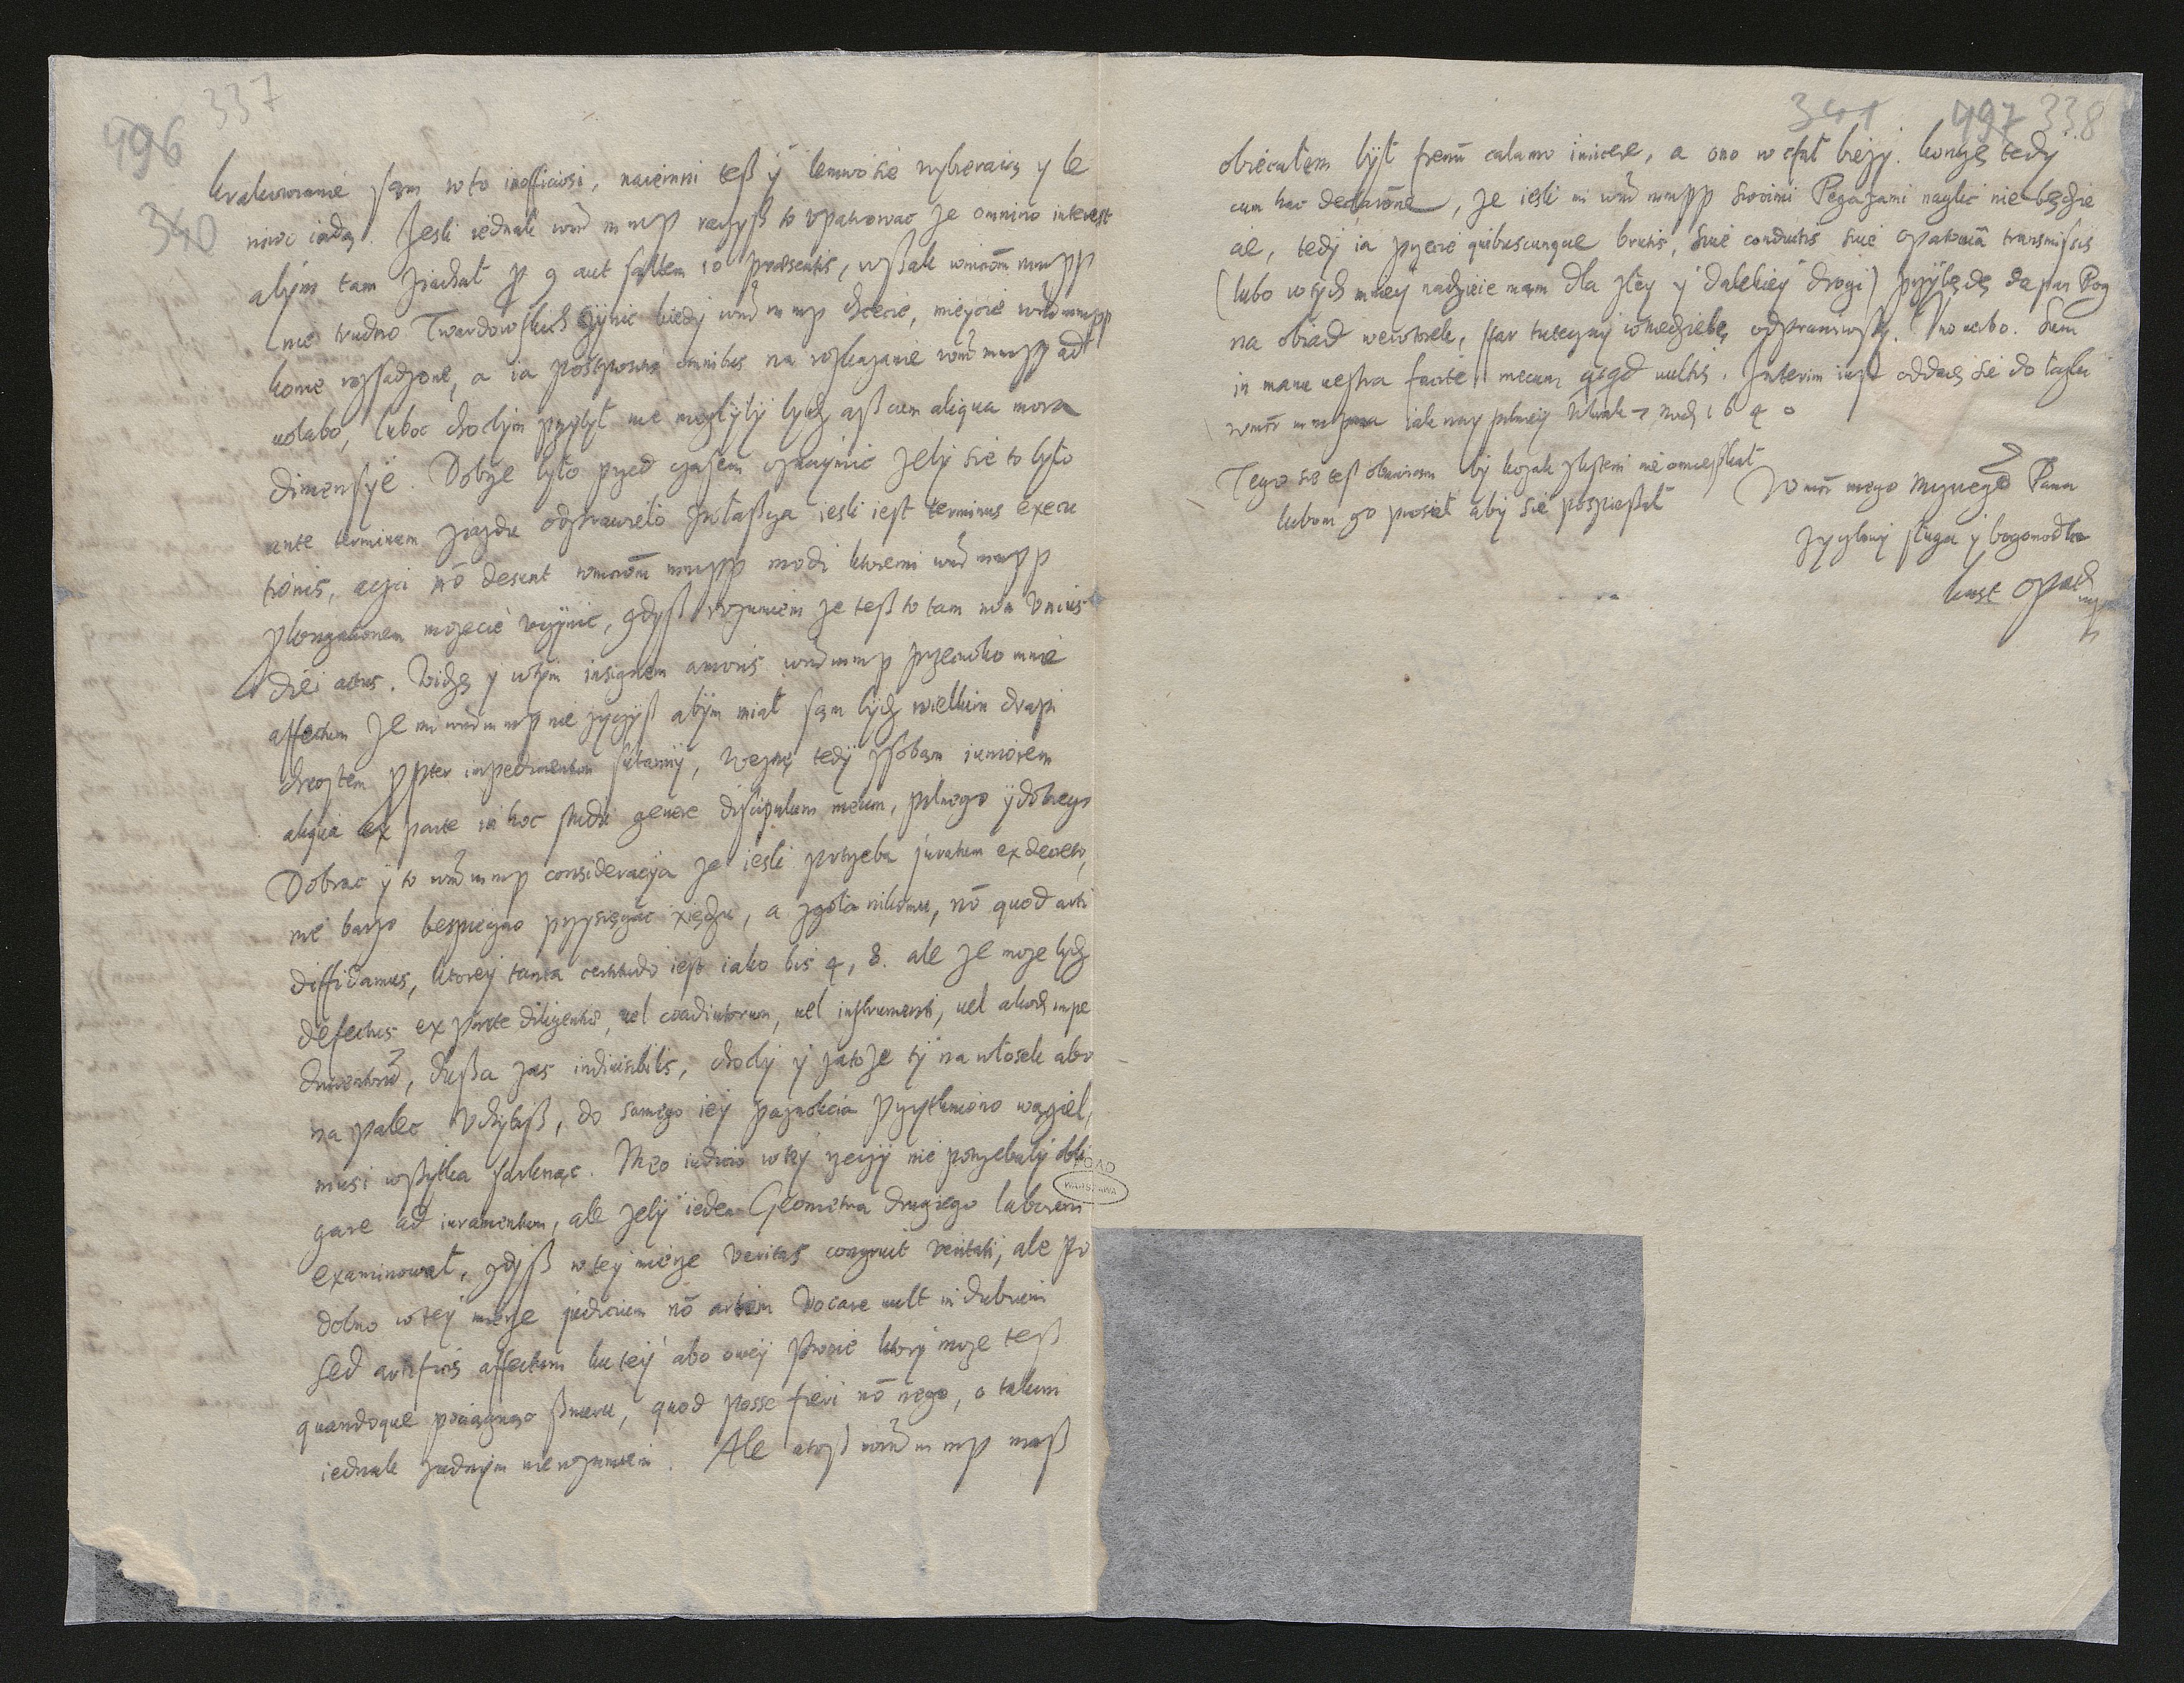 496 337
340
krakowianie sam w to inofficiosi, naiemni teß y leniwo sie wybieraią y le
niwo iadą. Jesli iednak wm m mp raczyß to upatrowac ze omnino interest
abym tam ziachał p 9 aut saltem 10 praesentis, wßak wmciom mmpp
nie trudno Twardowskich czynic kiedy wm m mp chcecie, mieycie wm mmpp
konie rozsadzone, a ia postpositis omnibus na rozkazanie wm mmpp ad
uolabo, luboc chocbym przybył nie mogłyby bydz aß cum aliqua mora
dimensye. Dobrze było przed czasem oznaymic zeby sie to było
ante terminum ziazdu odprawieło zwłaßcza iesli iest terminus execu
tionis, aczci nō desunt wmciom mmpp modi ktoremi wm mmpp
plongationem mozecie uczynic, gdyß rozumiem ze teß to tam non unius
diei actus. Widzę y w tym insignem amoris wm m mp przeciwko mnie
affectum ze mi wm m mp nie zyczyß abym miał sam bydz wielkim drapi
chrostem ppter impedimentum sutanny, Wezmę tedy z sobą iuniorem
aliqua ex parte in hoc studii genere discipulum meum, pilnego y dobrego
Dobrac y to wm m mp consideracya ze iesli potrzeba juratum ex decreto,
nie barzo bespieczno przysięgac xiędzu, a zgoła nikomu, nō quod arti
diffidamus, ktorey tanta certitudo iest iako bis 4, 8. ale ze moze bydz
defectus ex parte diligentiæ, uel coadiutorum, uel instrumenti, uel alicuius impe
dimentor, dußa zas indiuisibilis, choby y zato ze ty na włosek abo
na palec uchybiß, do samego iey paznokcia przytkniono węgiel,
musi wßytka sarknąc. Meo iudicio w tey rzeczy nie potrzebaby obli
gare ad iuramentum, ale zeby ieden Geometra drugiego laborem
examinował, gdyß w tey mierze veritas congruit veritati, ale po
dobno w tey mierze judicium nō artem vocare uult in dubium
sed artificis affectum ku tey abo owey stronie ktory moze teß
quandoque pociągnąc ßnuru, quod posse fieri nō nego, o takim
iednak zadnym nie rozumiem. Ale atoß wm m mp maß
AGAD
WARSZAWA
341 497 338
obiecałem był frenū calamo iniicere, a ono w cfał biezy. konczę tedy
cum hac declarōne, ze iesli mi wm mmpp swoimi Pegazami naglic nie będzie
cie, tedy ia przecie quibuscunque brutis, siue conductis siue opatouiā transmissis
(lubo w tych mniey nadzieie mam dla złey y dalekiey drogi) przybędę da pan Bog
na obiad we wtorek, staw tuteczny w niedzielę odprawiwßy. Uno uerbo. Sum
in manu uestra facite mecum qcqd uultis. Interim iuß oddaię sie do łaski
wmci m mpana iak nay pilniey 1640
Tego sie teß obawiam by kozak z listem nie omießkał
lubom go prosił aby sie pospießał
W mci mego Mczwego Pana
zyczliwy sługa y bogomodlca
kust opac